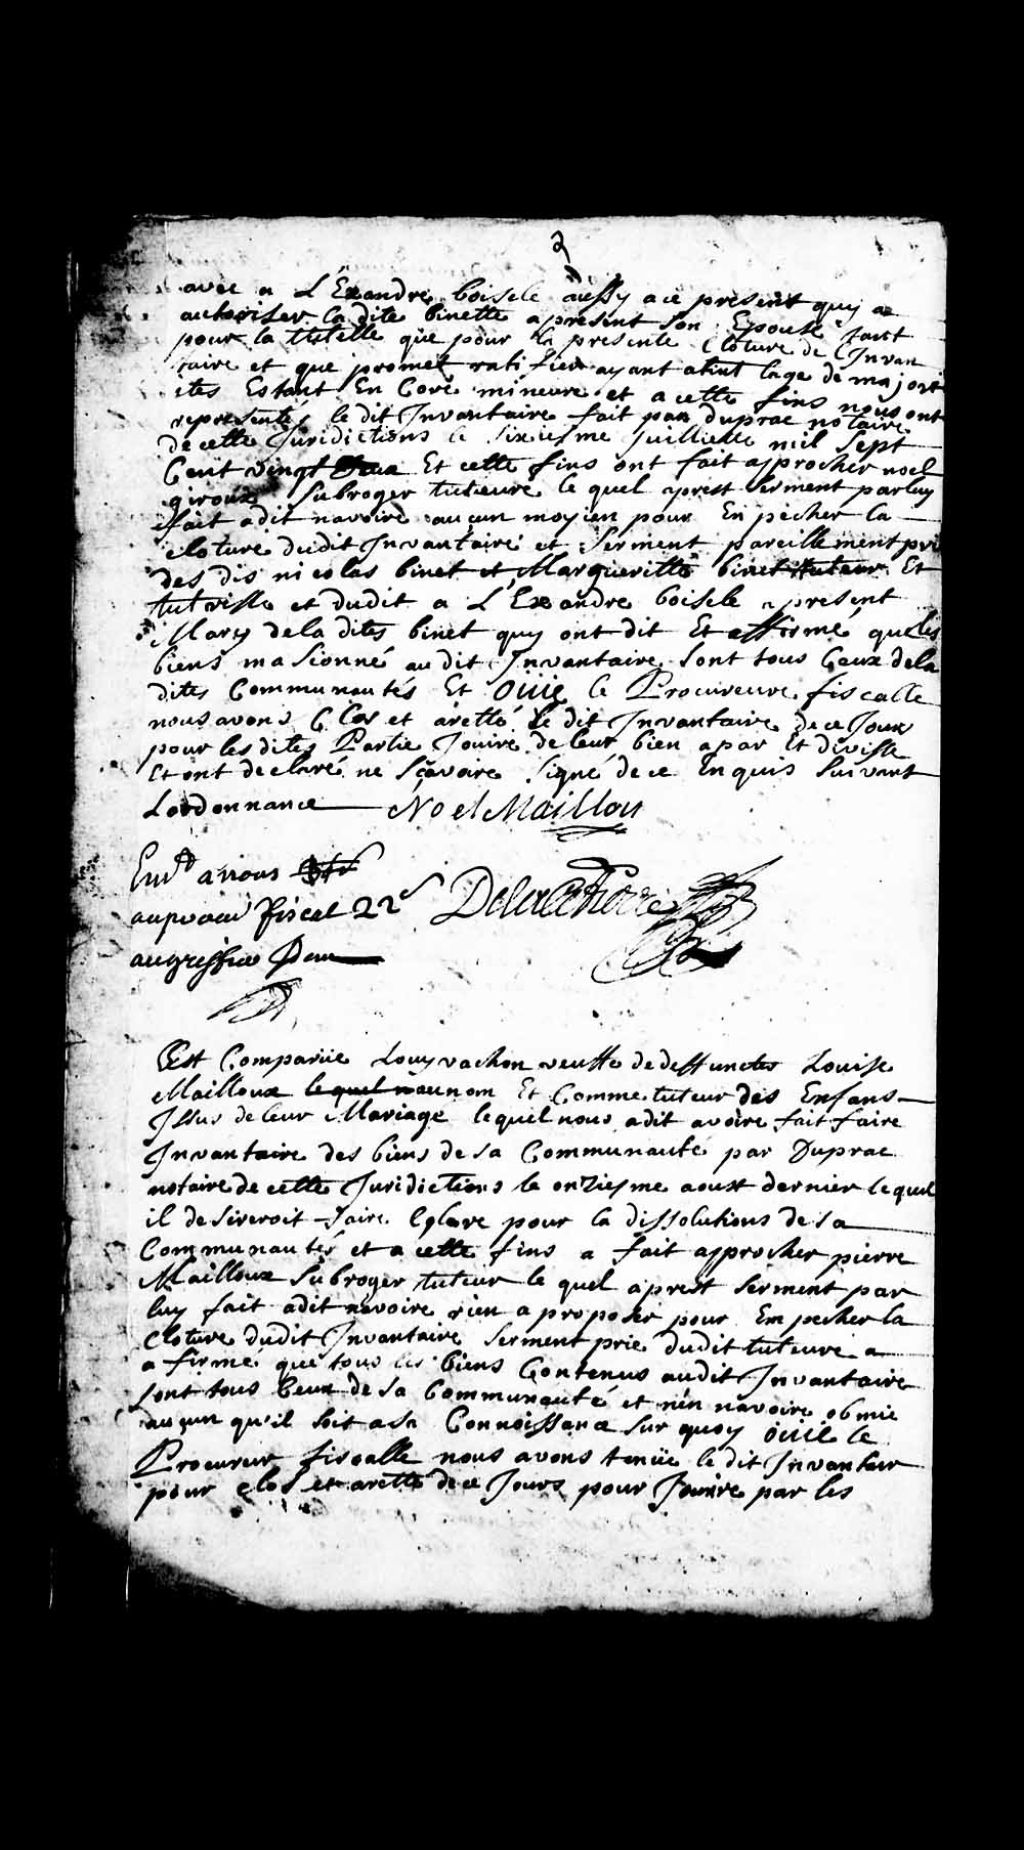 2
avec a L'Exandre boisele aussy a ce present quy a
autoriser la dite binette a present son Epouse tant
pour la tutelle que pour la presente Cloture de Invan
taire et que promet ratifier ayant atint lage de majorit
Estant En Core mineure et a cette fins nous ont
representés le dit Invantaire fait par duprac notaire
de cette Juridictions le sixiesme Juilliette mil sept
Cent vingt Et cette fins ont fait approcher noel
giroux Subroger tuteure le quel aprest serment par luy
fait adit navoire aucun moyien pour En pecher la
cloture dudit Invantaire et serment pareillement pri
des dis nicolas binet et Margueritte binet tuteur Et
tutrisse et dudit a L'Exandre boisele a present
Mary dela dites binet quy ont dit Et affirmé que les
biens masionné au dit Invantaire sont tous Ceux dela
dites Communautés Et oüie le Procureure fiscalle
nous avons Clos et aretté le dit Invantaire de ce Jour
pour les dites Partie Jouire de leur bien a par Et divisse
Et ont declaré ne sçavoire signé de ce Enquis suivant
Lordonnance Noel Maillou
a nous
fiscal 22
au greffie
Est Compariie Louy vachon veuffe de deffunctes Louise
Mailloux lequel nom Et Comme tuteur des Enfans
Issus de leur Mariage lequel nous adit avoire fait faire
Invantaire des biens de sa Communauté par Duprac
notaire de cette Juridictions le onziesme aoust dernier lequel
il desireroit faire Clore pour la dissolutions de sa
Communautés et a cette fins a fait approcher pierre
Mailloux Subroger tuteur le quel aprest serment par
luy fait adit navoire rien a proposer pour Em pecher la
Cloture dudit Invantaire serment prie dudit tuteure a
a firmé que tous les biens Contenus audit Invantaire
sont tous Ceux de sa Communauté et nen navoire obmie
aucun qu'il soit a sa Connoissance sur quoy oüie le
Procureur fiscalle nous avons tenüe le dit Invantair
pour clos et aretté de ce Jours pour Jouire par les